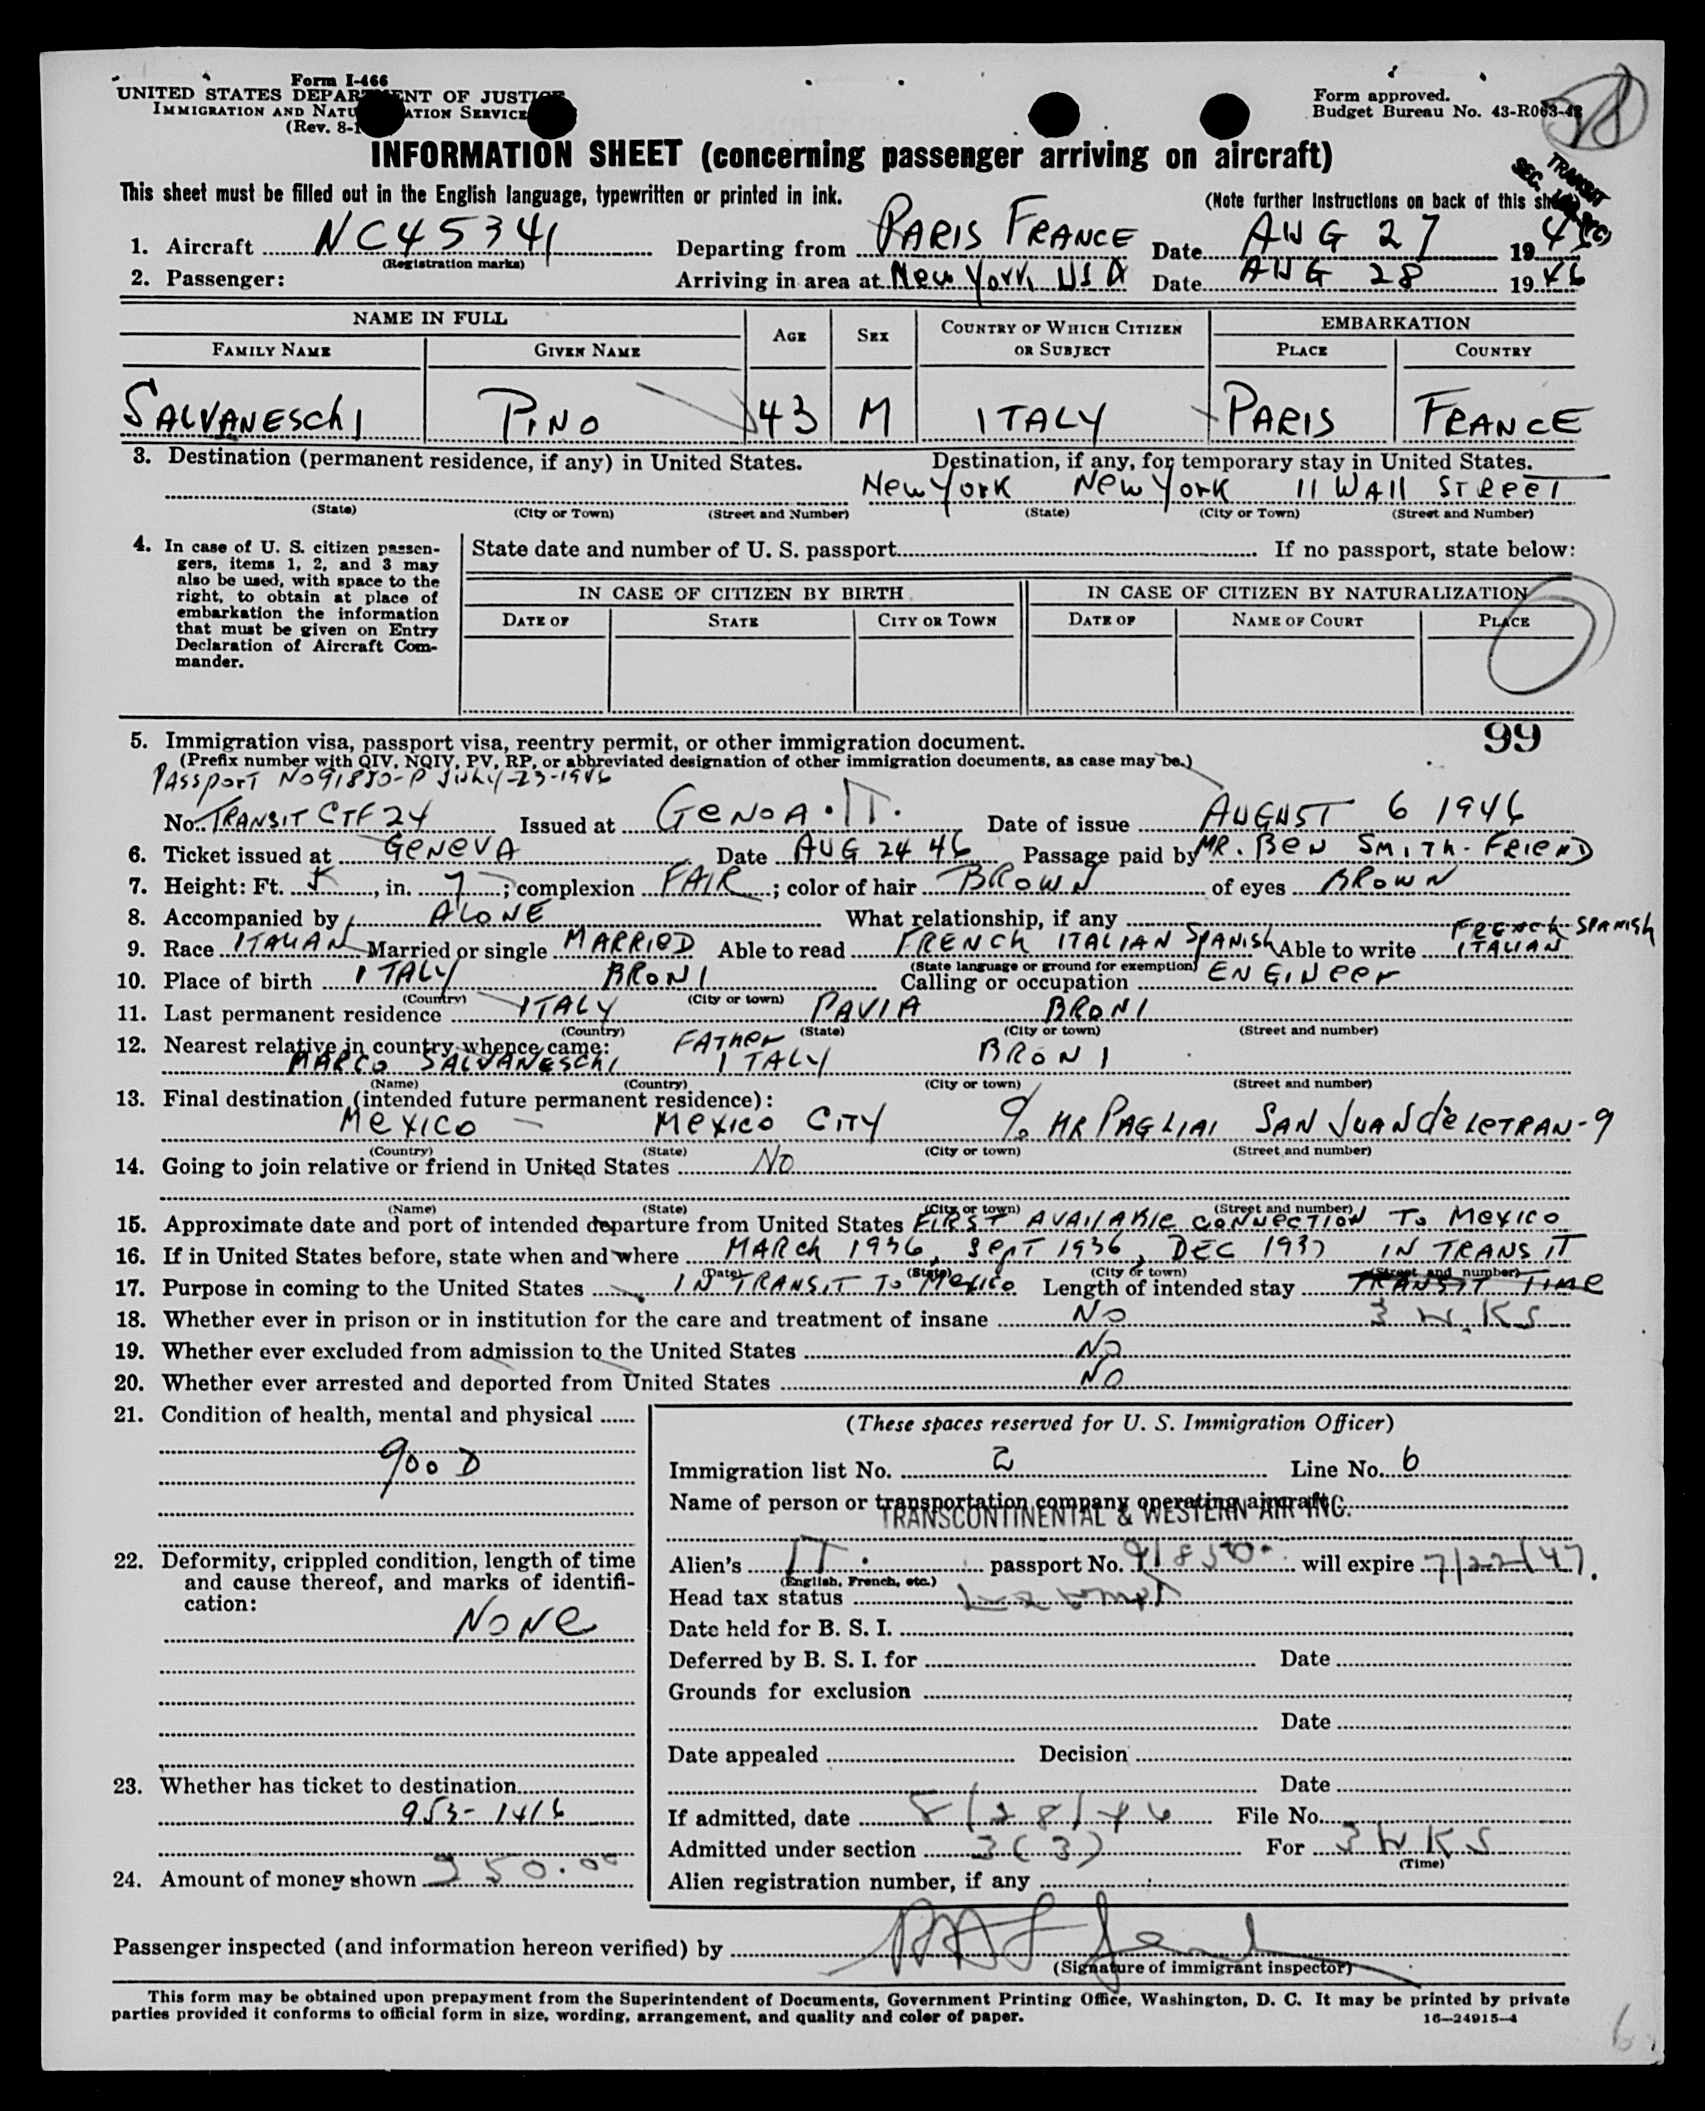 Form I-466
UNITED STATES DEPARTMENT OF JUSTICE
IMMIGRATION AND NATURALIZATION SERVICE
(Rev. 8-1
Form approved.
Budget Bureau No. 43-R063-42
INFORMATION SHEET (concerning passenger arriving on aircraft)
TRANSIT
SEC.
This sheet must be filled out in the English language, typewritten or printed in ink.
(Note further instructions on back of this sheet)
1. Aircraft NC45341 Departing from PARIS FRANCE Date AUG 27 19 46
(Registration marks)
2. Passenger: Arriving in area at New York USA Date AUG 28 19 46
NAME IN FULL
FAMILY NAME GIVEN NAME AGE SEX COUNTRY OF WHICH CITIZEN OR SUBJECT EMBARKATION PLACE COUNTRY
SALVANESCHI PINO 43 M ITALY PARIS FRANCE
3. Destination (permanent residence, if any) in United States. Destination, if any, for temporary stay in United States.
New York New York 11 WAll STREET
(State) (City or Town) (Street and Number) (State) (City or Town) (Street and Number)
4. In case of U. S. citizen passen-
gers, items 1, 2, and 3 may
also be used, with space to the
right, to obtain at place of
embarkation the information
that must be given on Entry
Declaration of Aircraft Com-
mander.
State date and number of U. S. passport If no passport, state below:
IN CASE OF CITIZEN BY BIRTH IN CASE OF CITIZEN BY NATURALIZATION
DATE OF STATE CITY OR TOWN DATE OF NAME OF COURT PLACE
99
5. Immigration visa, passport visa, reentry permit, or other immigration document.
(Prefix number with QIV, NQIV, PV, RP, or abbreviated designation of other immigration documents, as case may be.)
PASSPORT No 91850-P July-23-1946
No. TRANSIT CTF 24 Issued at GENOA.IT. Date of issue AUGUST 6 1946
6. Ticket issued at GENEVA Date AUG 24 46 Passage paid by MR. BEN SMITH-FRIEND
7. Height: Ft. 5, in. 7; complexion FAIR; color of hair BROWN of eyes BROWN
8. Accompanied by ALONE What relationship, if any
FRENCH-SPANISH
9. Race ITALIAN Married or single MARRIED Able to read FRENCH ITALIAN SPANISH Able to write ITALIAN
(State language or ground for exemption)
10. Place of birth ITALY BRONI Calling or occupation ENGINEER
(Country) (City or town)
11. Last permanent residence ITALY PAVIA BRONI
(Country) (State) (City or town) (Street and number)
12. Nearest relative in country whence came: FATHER
MARCO SALVANESCHI ITALY BRONI
(Name) (Country) (City or town) (Street and number)
13. Final destination (intended future permanent residence):
MEXICO - MEXICO CITY % MR PAGLIAI SAN JUAN de LETRAN-9
(Country) (State) (City or town) (Street and number)
14. Going to join relative or friend in United States NO
(Name) (State) (City or town) (Street and number)
15. Approximate date and port of intended departure from United States FIRST AVAILABLE CONNECTION TO MEXICO
16. If in United States before, state when and where MARCH 1936, SEPT 1936, DEC 1937 IN TRANSIT
(Date) (State) (City or town) (Street and number)
17. Purpose in coming to the United States IN TRANSIT TO MEXICO Length of intended stay TRANSIT TIME
18. Whether ever in prison or in institution for the care and treatment of insane NO 3 WKS
19. Whether ever excluded from admission to the United States NO
20. Whether ever arrested and deported from United States NO
21. Condition of health, mental and physical
gooD
22. Deformity, crippled condition, length of time
and cause thereof, and marks of identifi-
cation:
NONE
23. Whether has ticket to destination
953-1416
24. Amount of money shown 250.00
(These spaces reserved for U. S. Immigration Officer)
Immigration list No. 2 Line No. 6
Name of person or transportation company operating aircraft
TRANSCONTINENTAL & WESTERN AIR INC.
Alien's IT. passport No. 91850. will expire 7/22/47.
(English, French, etc.)
Head tax status Exempt
Date held for B. S. I.
Deferred by B. S. I. for Date
Grounds for exclusion
Date
Date appealed Decision
Date
If admitted, date 8/28/46 File No.
Admitted under section 3(3) For 3 WKS
(Time)
Alien registration number, if any
Passenger inspected (and information hereon verified) by
(Signature of immigrant inspector)
This form may be obtained upon prepayment from the Superintendent of Documents, Government Printing Office, Washington, D. C. It may be printed by private
parties provided it conforms to official form in size, wording, arrangement, and quality and color of paper.
16—24915-4
6